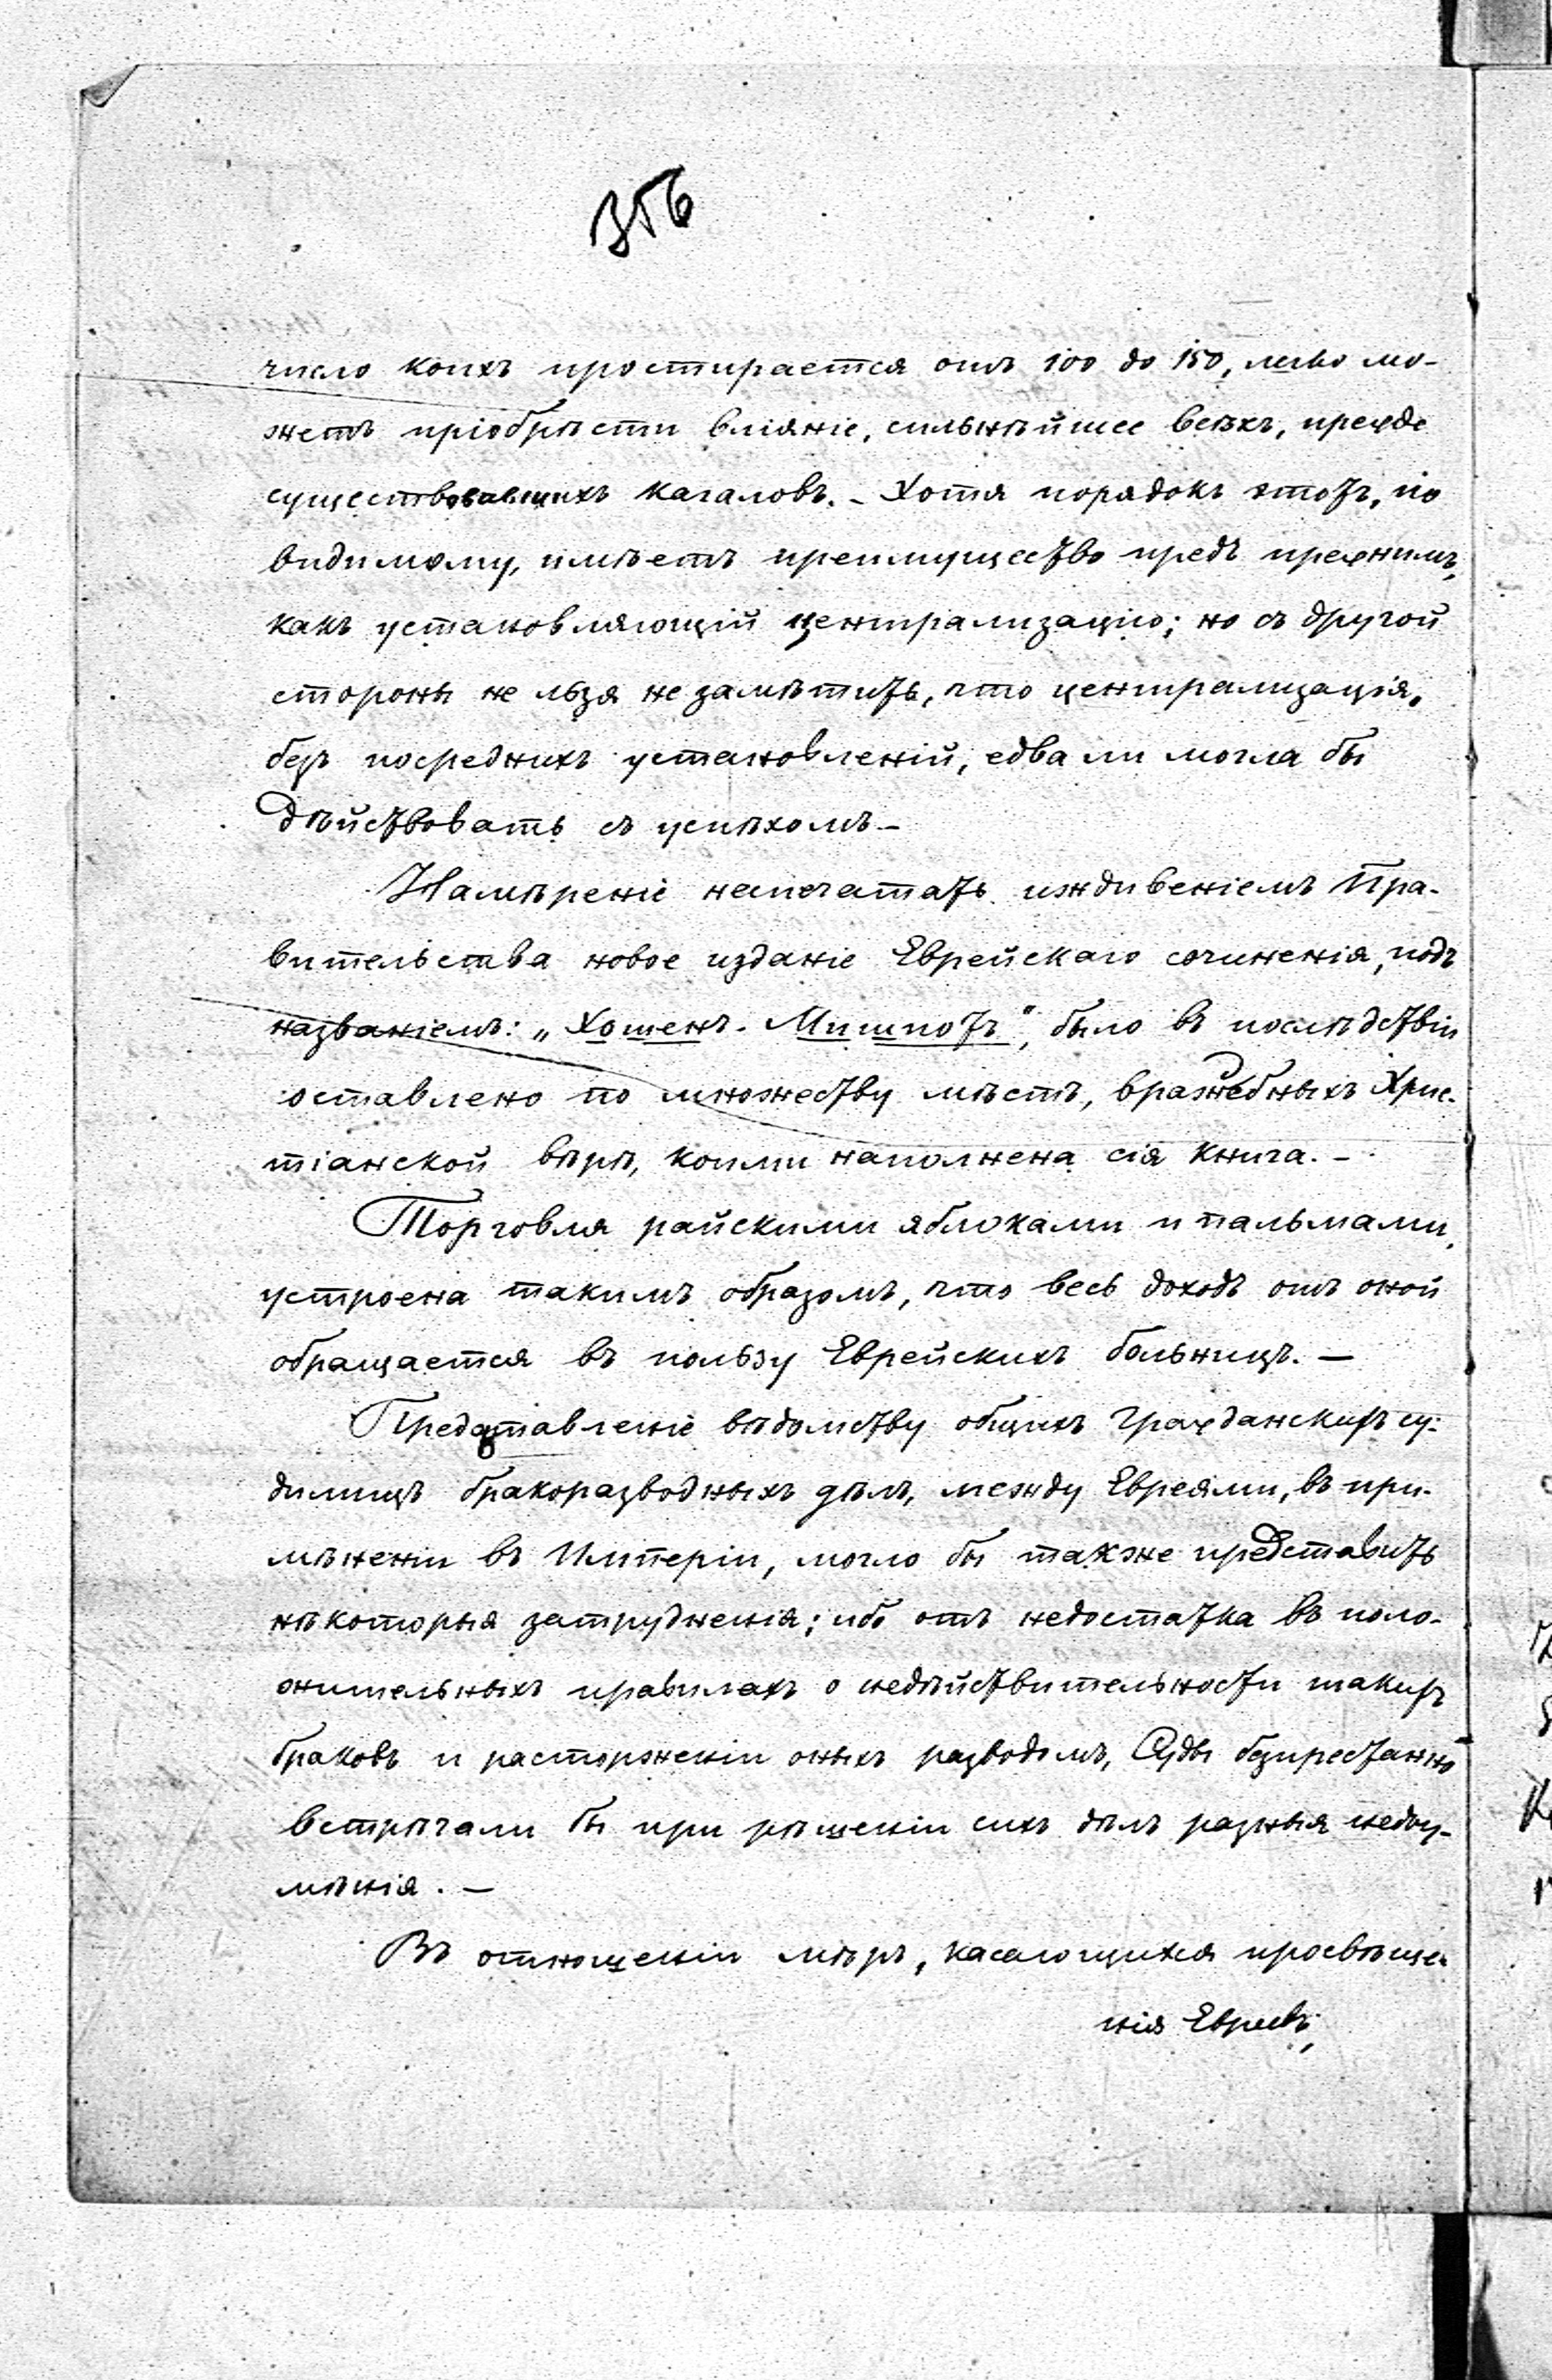 356
число коихъ простирается отъ 100 до 150, легко мо-
жетъ пріобрѣсти вліяніе, сильнѣйшее всѣхъ, прежде
существовавшихъ кагаловъ. – Хотя порядокъ этотъ, по
видимому, имѣетъ преимущество предъ прежнимъ,
какъ установляющій централизацію; но съ другой
стороны не льзя не замѣтить, что централизація,
безъ посредних установленій, едва ли могла бы
дѣйствовать съ успѣхомъ –
Намѣреніе напечатать иждивеніемъ Пра-
вительства новое изданіе Еврейскаго сочиненія, подъ
названіемъ: „Хошенъ-Мишпотъ", было въ послѣдствіи
оставлено по множеству мѣстъ, враждебныхъ Хрис-
тіанской вѣрѣ, коими наполнена сія книга. –
Торговля райскими яблоками и пальмами,
устроена такимъ образомъ, что весь доходъ отъ оной
обращается въ пользу Еврейскихъ больницъ. –
Предоставленіе вѣдомству общихъ гражданскихъ су-
дилищъ бракоразводныхъ дѣлъ, между Евреями, въ при-
мѣненіи въ Имперіи, могло бы также представить
нѣкоторыя затрудненія; ибо отъ недостатка въ поло-
жительныхъ правилахъ о недѣйствительности такихъ
браковъ и расторженіи оныхъ разводомъ, Суды безпрестанно
встрѣчали бы при рѣшеніи сихъ дѣлъ разныя недоу-
мѣнія. –
Въ отношеніи мѣръ, касающихся просвѣще-
нія Евреевъ,